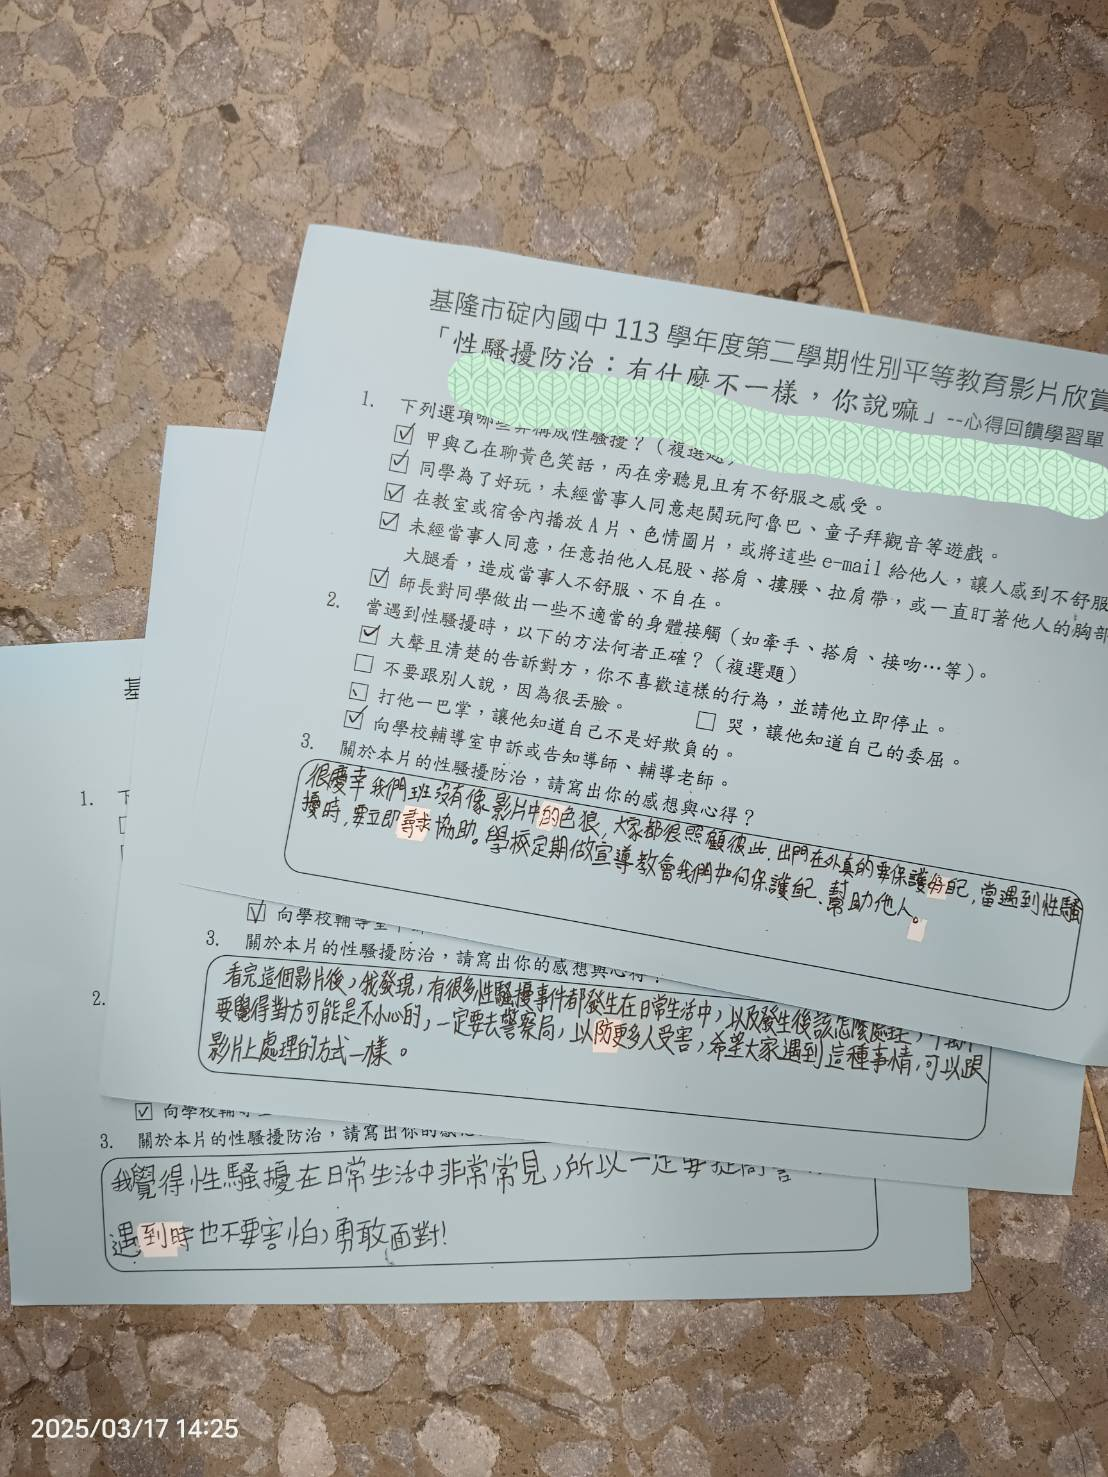 基隆市碇內國中 113 學年度第二學期性別平等教育影片欣賞
「性騷擾防治：有什麼不一樣，你說嘛」--心得回饋學習單
1. 下列選項哪些算構成性騷擾？（複選題）
甲與乙在聊黃色笑話，丙在旁聽見且有不舒服之感受。
同學為了好玩，未經當事人同意起鬨玩阿魯巴、童子拜觀音等遊戲。
在教室或宿舍內播放A片、色情圖片，或將這些 e-mail 給他人，讓人感到不舒服
未經當事人同意，任意拍他人屁股、搭肩、摟腰、拉肩帶，或一直盯著他人的胸部
大腿看，造成當事人不舒服、不自在。
師長對同學做出一些不適當的身體接觸（如牽手、搭肩、接吻…等）。
2. 當遇到性騷擾時，以下的方法何者正確？（複選題）
大聲且清楚的告訴對方，你不喜歡這樣的行為，並請他立即停止。
不要跟別人說，因為很丟臉。 哭，讓他知道自己的委屈。
打他一巴掌，讓他知道自己不是好欺負的。
向學校輔導室申訴或告知導師、輔導老師。
3. 關於本片的性騷擾防治，請寫出你的感想與心得？
很慶幸我們班沒有像影片中的色狼，大家都很照顧彼此.出門在外真的要保護自己,當遇到性騷
擾時,要立即尋求協助。學校定期做宣導教會我們如何保護自己、幫助他人。
向學校輔導室
3. 關於本片的性騷擾防治，請寫出你的感想與心得？
看完這個影片後，我發現，有很多性騷擾事件都發生在日常生活中，以及發生後該怎麼處理，
要覺得對方可能是不小心的，一定要去警察局，以防更多人受害，希望大家遇到這種事情，可以跟
影片上處理的方式一樣。
1. 下
2.
向學校輔導
3. 關於本片的性騷擾防治，請寫出你的感
我覺得性騷擾在日常生活中非常常見，所以一定要提高
遇到時也不要害怕，勇敢面對!
2025/03/17 14:25